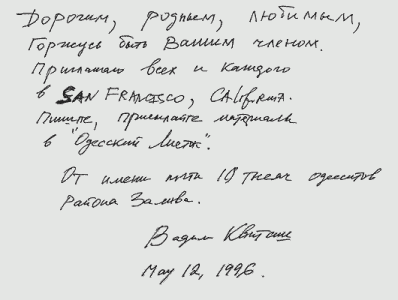 Дорогим, родным, любимым,
Горжусь быть Вашим членом.
Приглашаю всех и каждого
в SAN FRANCISCO, California.
Пишите, присылайте материалы
в "Одесский Листок".
От имени почти 10 тысяч одесситов
района Залива.
Вадим
May 12, 1996.